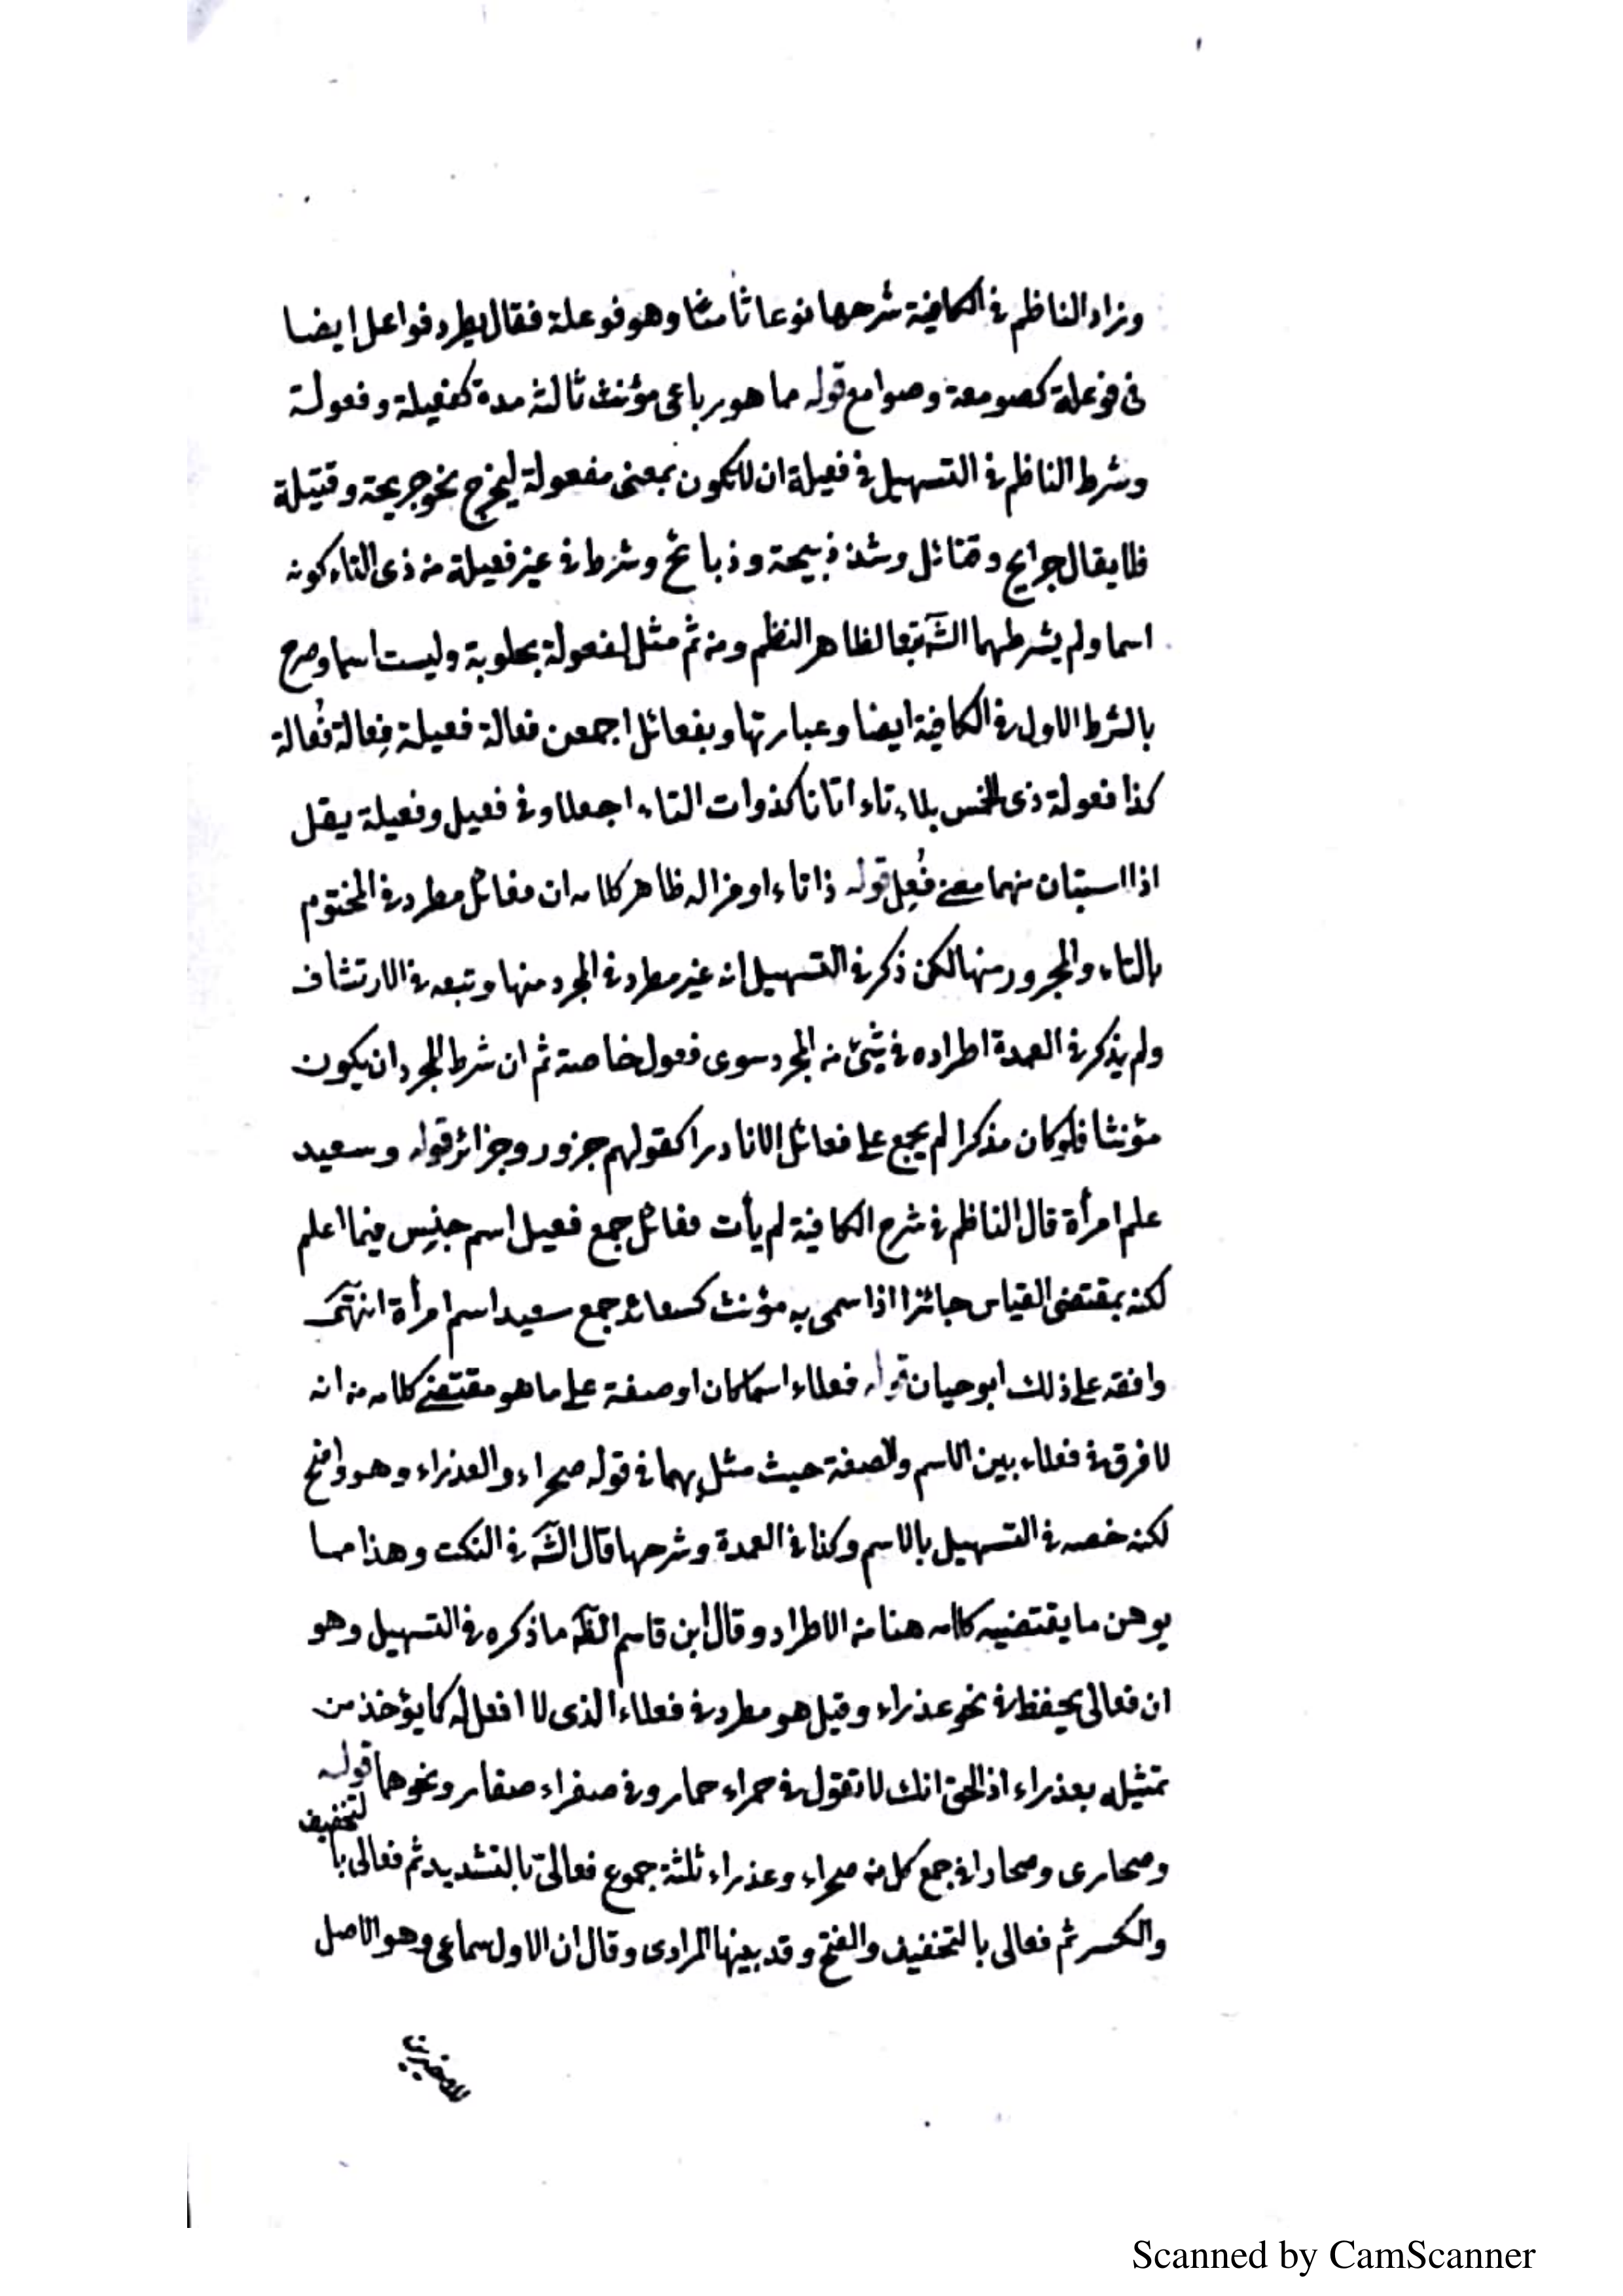 وزاد الناظم في الكافية شرحها نوعا ثامنا وهو فوعلة فقال يطرد فواعل ايضا
في فوعلة كصومعة وصوامع قوله مما هو رباعي مؤنث ثالثه مدة كفعيلة وفعولة
وشرط الناظم في التسهيل في فعيلة ان لا تكون بمعنى مفعولة ليخرج نحو جريحة وقتيلة
فلا يقال جرايح وقتائل وشذ ذبيحة وذبائح وشرط في غير فعيلة من ذى التاء كونه
اسما ولم يشرطهما الش تبعا لظاهر النظم ومن ثم مثل لفعولة بحلوبة وليست اسما وصرح
بالشرط الاول في الكافية ايضا وعبارتها وبفعائل اجمعن فعالة فعيلة فِعالة فُعالة
كذا فعولة ذى الخمس بلا تاء اتانا كذوات التاء اجعلا وفي فعيل وفعيلة يقل
اذا استبان منهما معنى فُعِل قوله ذا تاء او مزاله ظاهر كلامه ان فعائل مطرد في المختوم
بالتاء والمجرور منها لكن ذكر في التسهيل انه غير مطرد في المجرد منها وتبعه في الارتشاف
ولم يذكر في العمدة اطراده في شئ من المجرد سوى فعول خاصة ثم ان شرط المجرد ان يكون
مؤنثا فلو كان مذكرا لم يجمع على فعائل الا نادرا كقولهم جزور وجزائر قوله وسعيد
علم امرأة قال الناظم في شرح الكافية لم يأت فعائل جمع فعيل اسم جنس فيما اعلم
لكنه بمقتضى القياس جائزا اذا سمى به مؤنث كسعائد جمع سعيد اسم امرأة انتهى
وافقه على ذلك ابو حيان قوله فعلاء اسما كان او صفة على ما هو مقتضى كلامه من انه
لا فرق في فعلاء بين الاسم والصفة حيث مثل بهما في قوله صحراء والعذراء وهو واضح
لكنه خصه في التسهيل بالاسم وكذا في العمدة وشرحها قال الش في النكت وهذا مما
يوهن ما يقتضيه كلامه هنا من الاطراد وقال ابن قاسم الظ ما ذكره في التسهيل وهو
ان فعالى يحفظ في نحو عذراء وقيل هو مطرد في فعلاء الذى لا افعل له كما يؤخذ من
تمثيله بعذراء اذ الحق انك لا تقول في حمراء حمار وفي صفراء صفار ونحوهما قوله
وصحارى وصحار في جمع كل من صحراء وعذراء ثلثة جموع فعالىّ بالتشديد ثم فعالى بالتخفيف
والكسر ثم فعالى بالتخفيف والفتح وقد بينها المرادى وقال ان الاول سماعي وهو الاصل